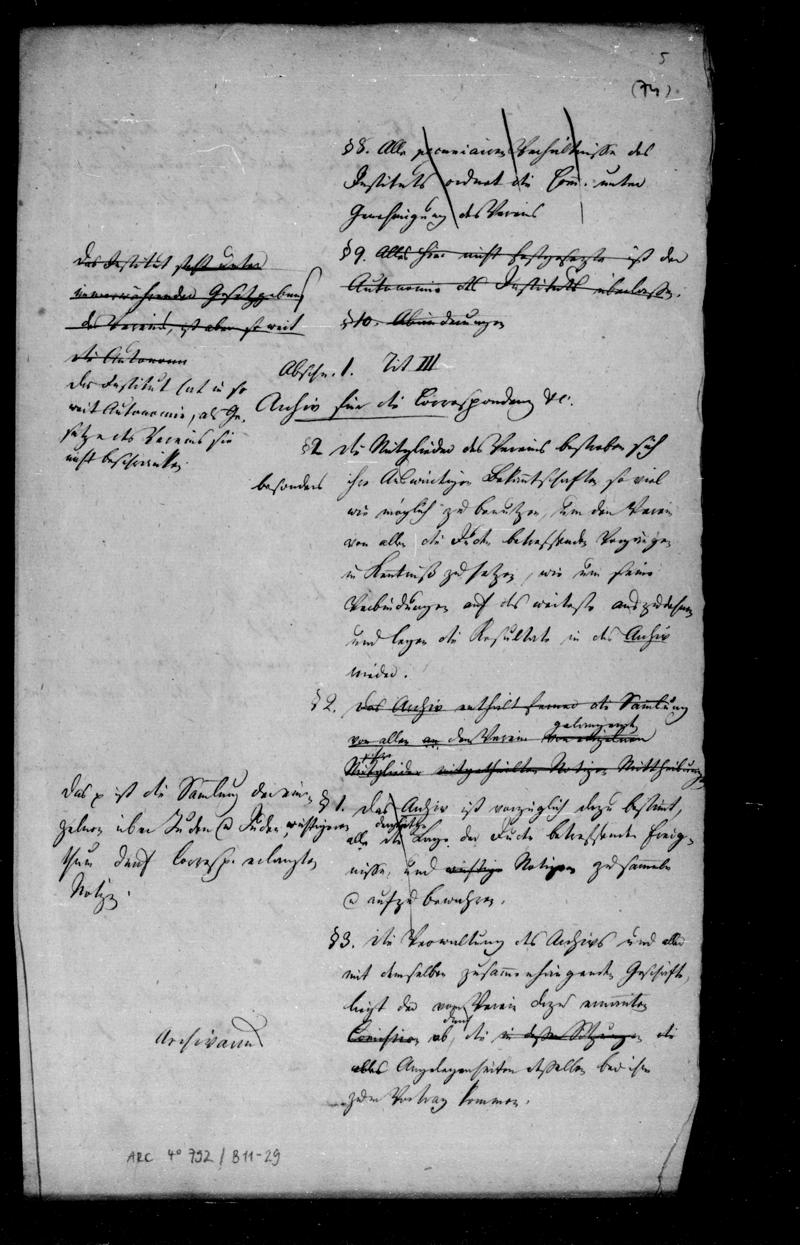 5
(74)
§8. Alle pecuniairen Verhältnisse des
Instituts ordnet die Comm. unter
Genehmigung des Vereins
§9. Alles hier nicht Festgesetzte ist der
Autonomie des Instituts überlassen.
§10. Abänderungen
Das Institut steht unter
immerwährender Gesetzgebung
des Vereins, ist aber so weit
die Autonom
Das Institut hat in so
weit Autonomie, als Ge-
setze des Vereins sie
nicht beschränken
Abschn. 1. Tit III
Archiv für die Correspondenz &c.
§2 Die Mitglieder des Vereins bestreben sich
besonders ihre Auswärtigen Bekanntschaften so viel
wie möglich zu benutzen, um den Verein
von allen die Juden betreffenden Vorgängen
in Kentniß zu setzen, wie um seine
Verbindungen auf das weiteste auszudehnen
und legen die Resultate in das Archiv
nieder.
§2. Das Archiv enthält ferner die Samlung
von allen an den Verein von einzelnen
gelangenden
Mitglieder mitgetheilten Notizen Mittheilungen
Das p ist die Samlung der ein-
zelnen über Juden & Juden
thum durch Corresp. erlangten
Notizen.
§1. Das Archiv ist vorzüglich dazu bestimt,
alle die Lage der Juden betreffende Ereig-
nisse, und wichtige Notizen zu sammeln
& aufzubewahren.
§3. Die Verwaltung des Archivs und aller
mit demselben zusammenhängenden Geschäfte,
liegt der vom Verein dazu ernannten
Comission ob, die in deren Sitzungen die
durch
alles Angelegenheiten desselben bei ihr
zum Vortrag kommen.
Archivarius
ARC 4° 792 / B11-29